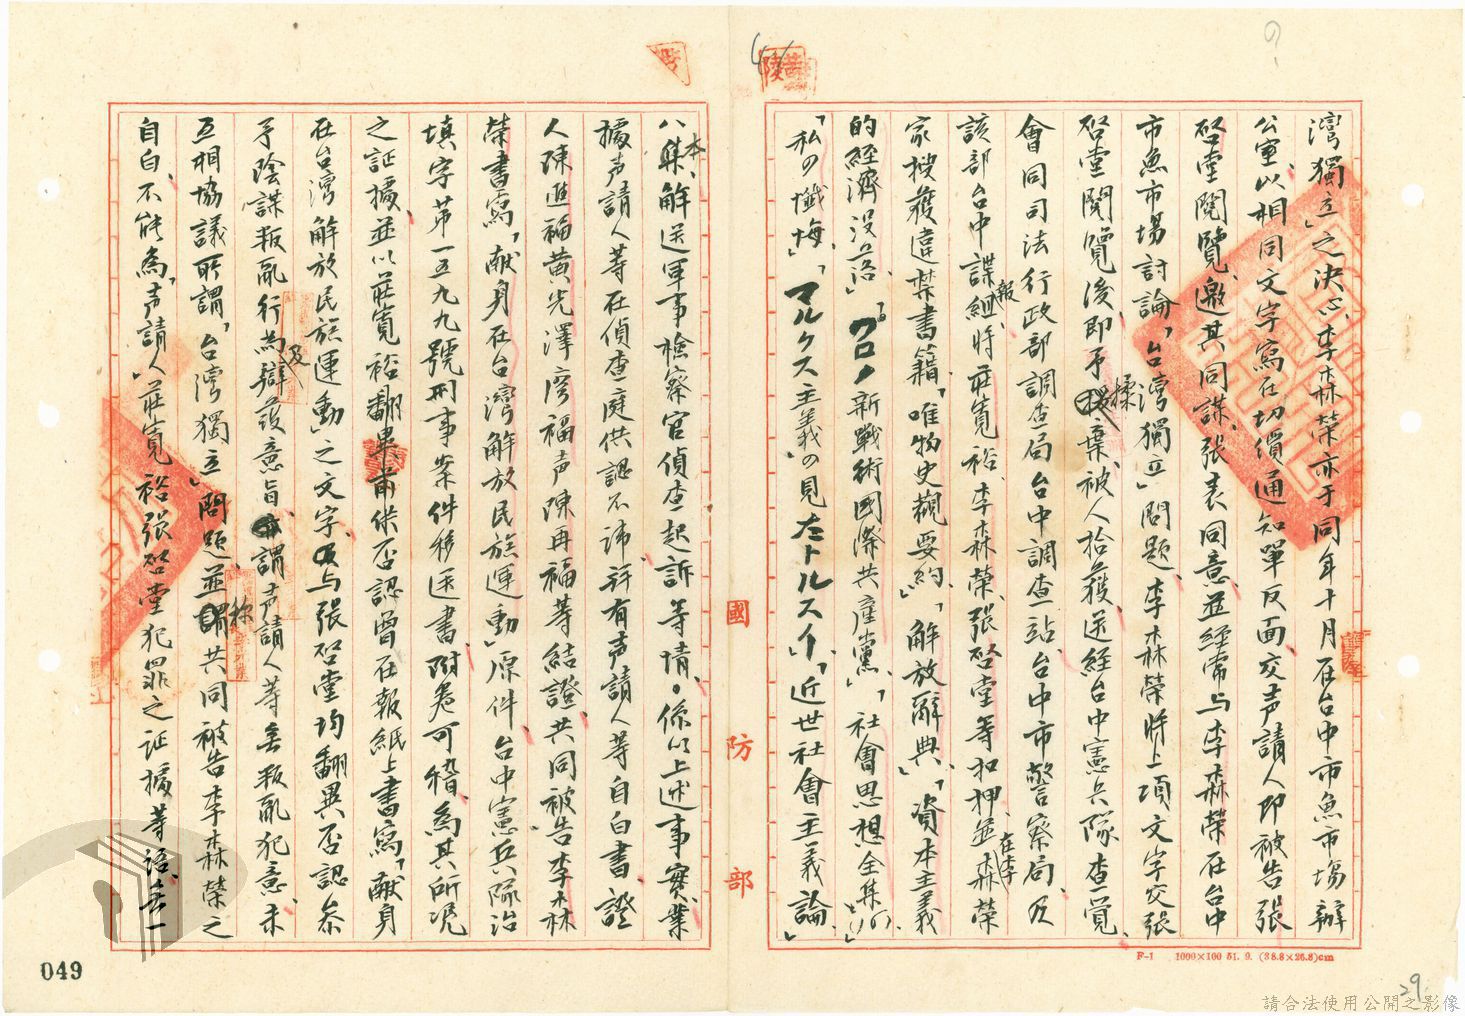 灣獨立」之決心、李森榮亦于同年十月在台中市魚市場辦
公室、以相同文字寫在切償通知單反面、交声請人即被告張
啓堂閱覽、邀其同謀、張表同意並經常与李森榮在台中
市魚市場討論「台灣獨立」問題、李森榮將上項文字交張
啓堂閱覽後即予揉棄、被人拾獲送経台中憲兵隊查覺、
會同司法行政部調查局台中調查站、台中市警察局、及
該部台中諜報組、將莊寬裕、李森榮、張啓堂等扣押並在李森榮
家搜獲違禁書籍「唯物史觀要約」、「解放辭典」、「資本主義
的經濟没落」、「プロノ新戰術國際共産黨」、「社會思想全集(八)」、
「私の懺悔」「マルクス主義の見たトルストイ」、「近世社會主義論」、
八本、解送軍事檢察官偵查起訴等情。係以上述事實、業
據声請人等在偵查庭供認不諱、并有声請人等自白書、證
人陳進福黄光澤房福声陳再福等結證、共同被告李森
榮書寫「献身在台灣解放民族運動」原件、台中憲兵隊治
填字第一五九九號刑事案件移送書、附卷可稽、為其所凭
之証據、並以莊寬裕翻異前供否認曾在報紙上書寫「献身
在台灣解放民族運動」之文字、及与張啓堂均翻異否認參
予陰謀叛亂行為及辯護意旨謂声請人等無叛亂犯意、未
互相協議所謂「台灣獨立」問題、並称共同被告李森榮之
自白、不能為「声請人」莊寬裕張啓堂犯罪之証據等語、無一
國防部
F-1 1000×100 51. 9. (38.8×26.8)cm
049
29
請合法使用公開之影像